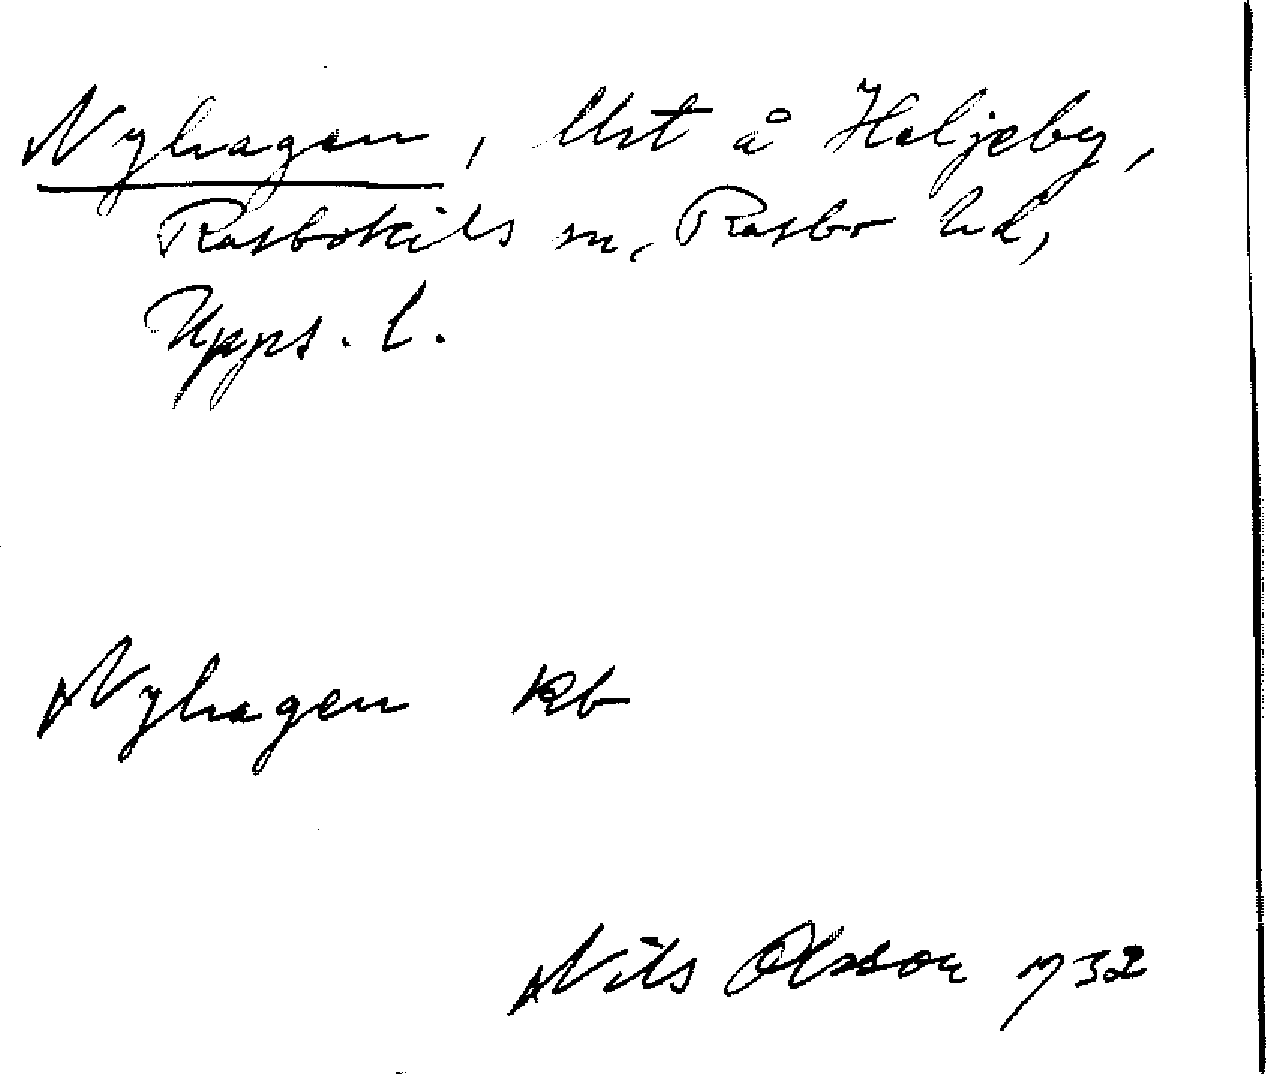 Nyhagen, Urt å Haljeby,
Rasbokils sn, Rasbo hd,
Upps. l.
Nyhagen kb
Nils Olsson 1932